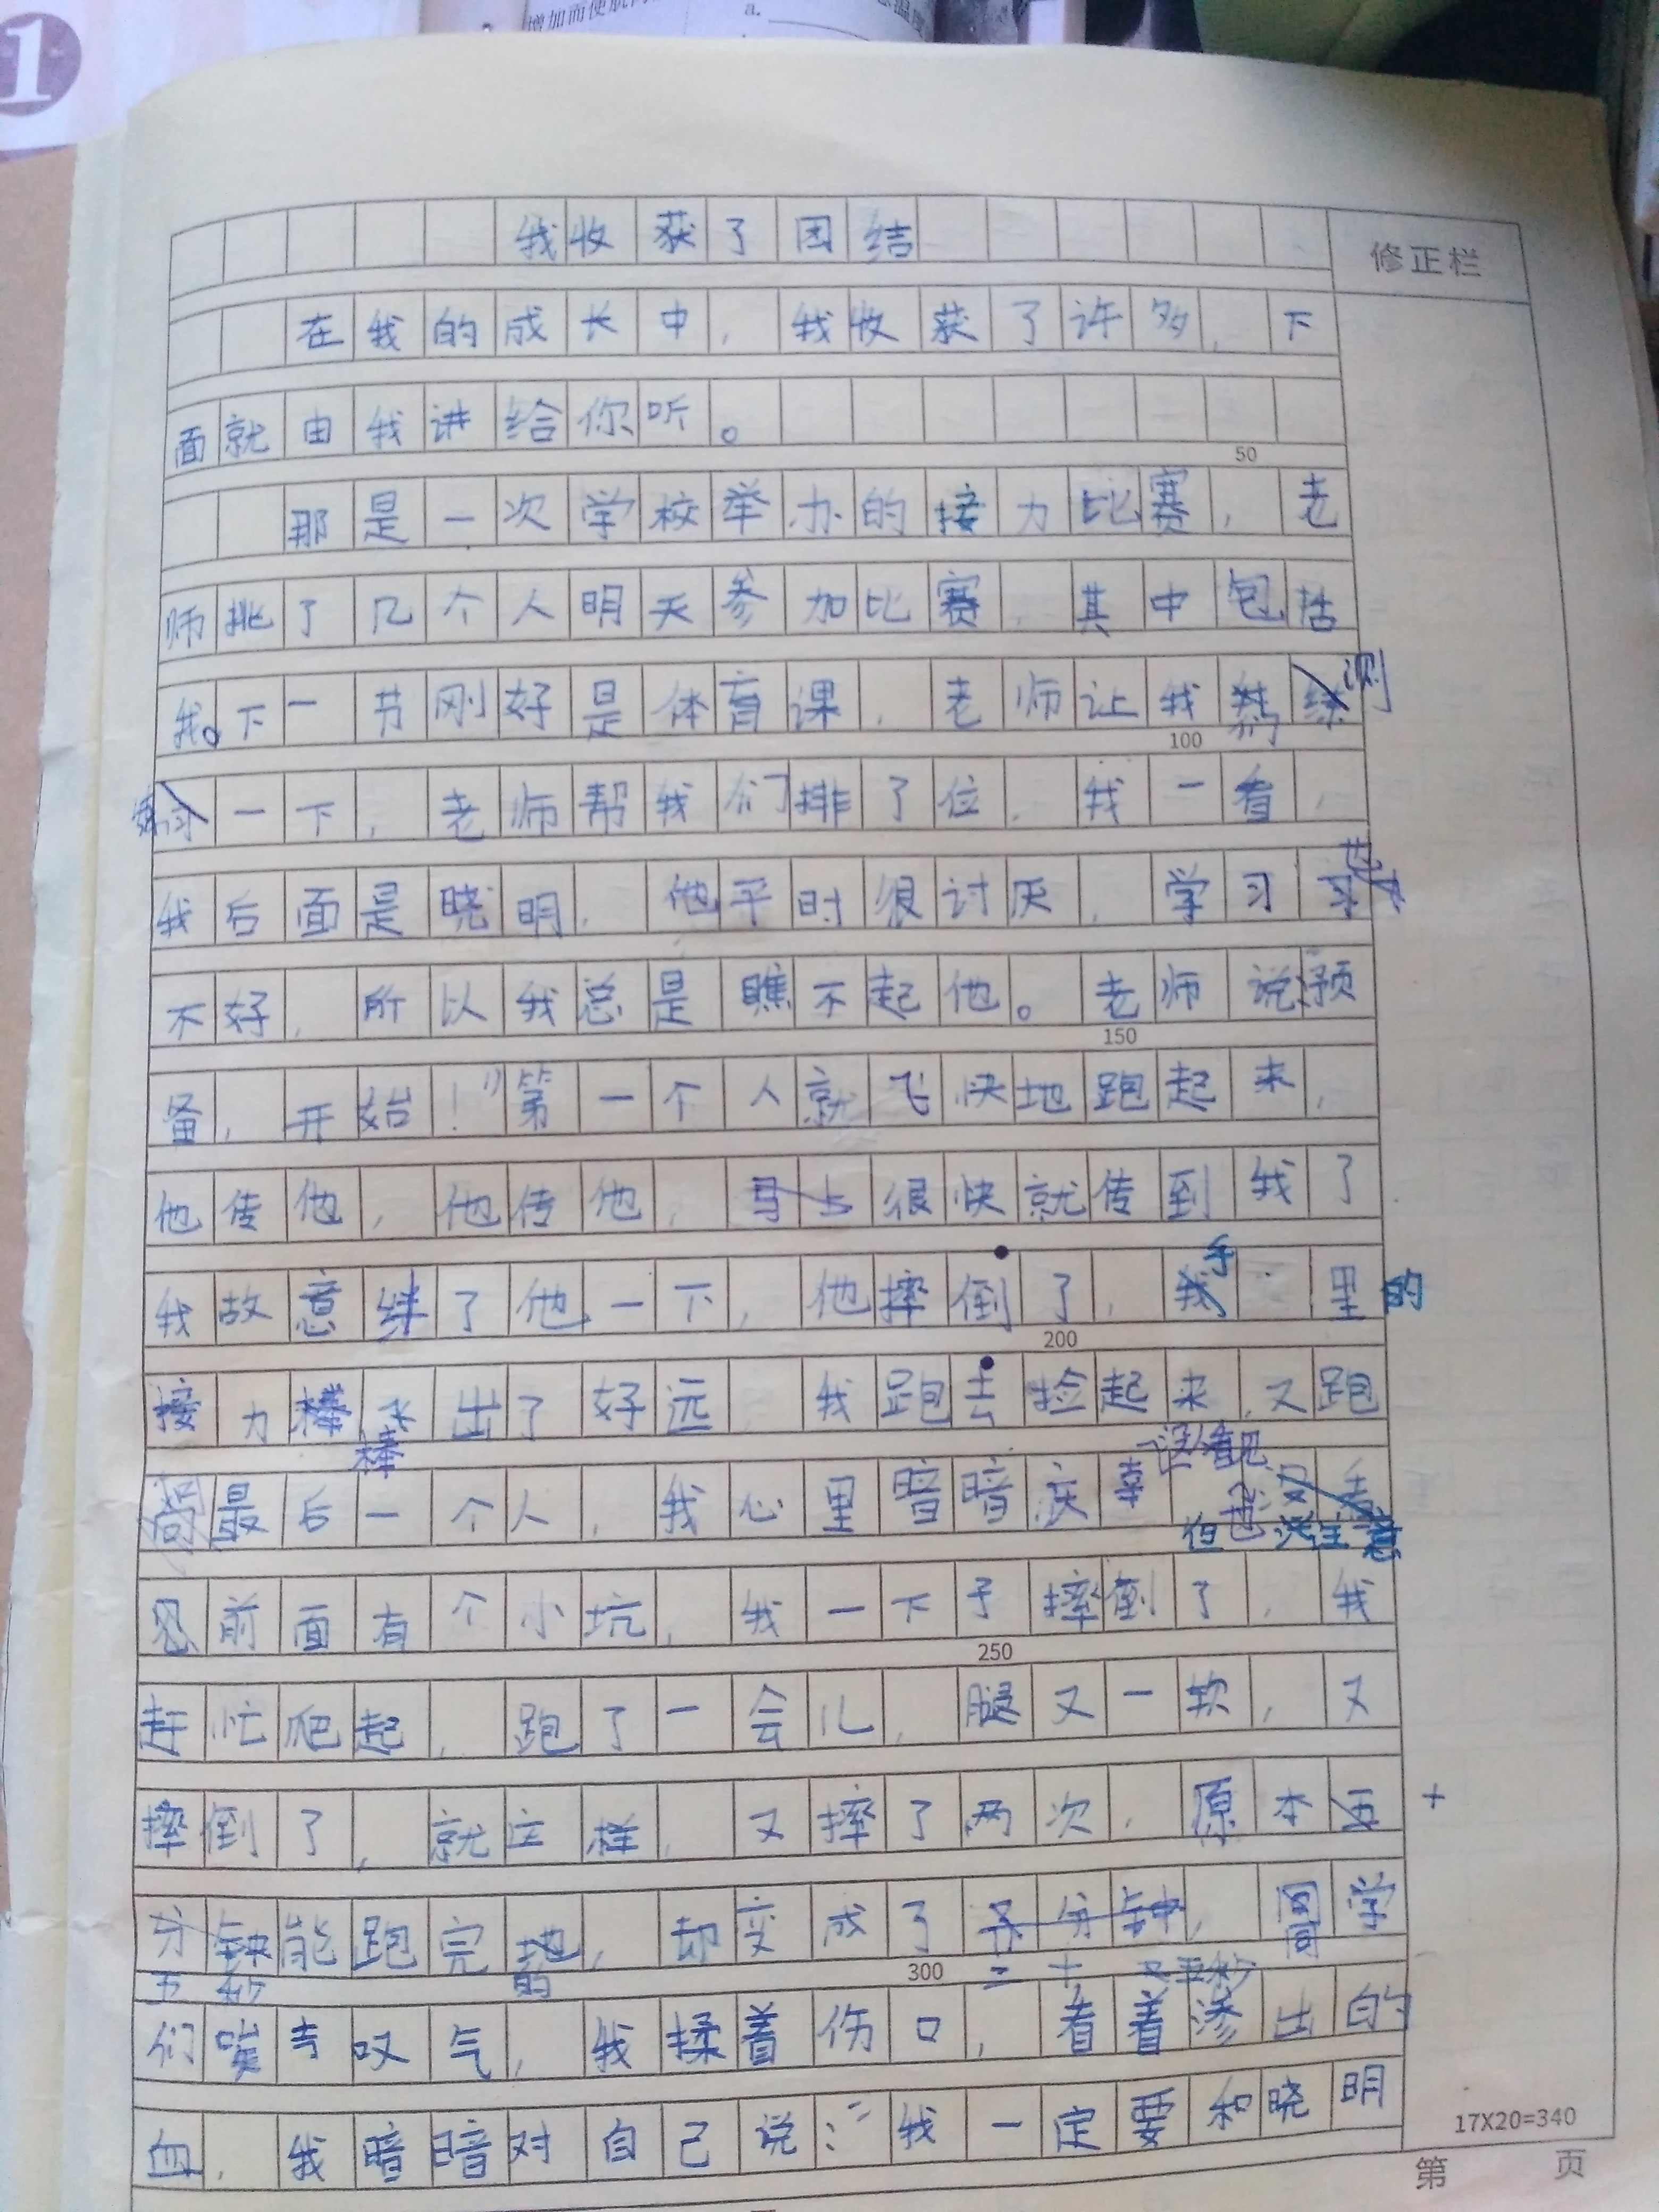 增加而使
a.
1
我收获了团结
修正栏
在我的成长中，我收获了许多，下
面就由我讲给你听。
50
那是一次学校举办的接力比赛，老
师挑了几个人明天参加比赛，其中包括
我。下一节刚好是体育课，老师让我们训
练一下，老师帮我们排了位，我一看，
100
我后面是晓明，他平时很讨厌，学习
不好，所以我总是瞧不起他。老师说：预
150
备，开始！"第一个人就飞快地跑起来，
他传他，他传他，很快就传到我了
我故意绊了他一下，他摔倒了，手里的
200
接力棒飞出了好远，我跑去捡起来，又跑
向最后一个人，我心里暗暗庆幸没人看见
但也没注意
前面有个小坑，我一下子摔倒了，我
250
赶忙爬起，跑了一会儿，腿又一软，又
摔倒了，就这样，又摔了两次，原本十
五秒能跑完的，却变成了二十五秒，同学
300
们唉声叹气，我揉着伤口，看着渗出的
血，我暗暗对自己说："我一定要和晓明
17X20=340
第 页